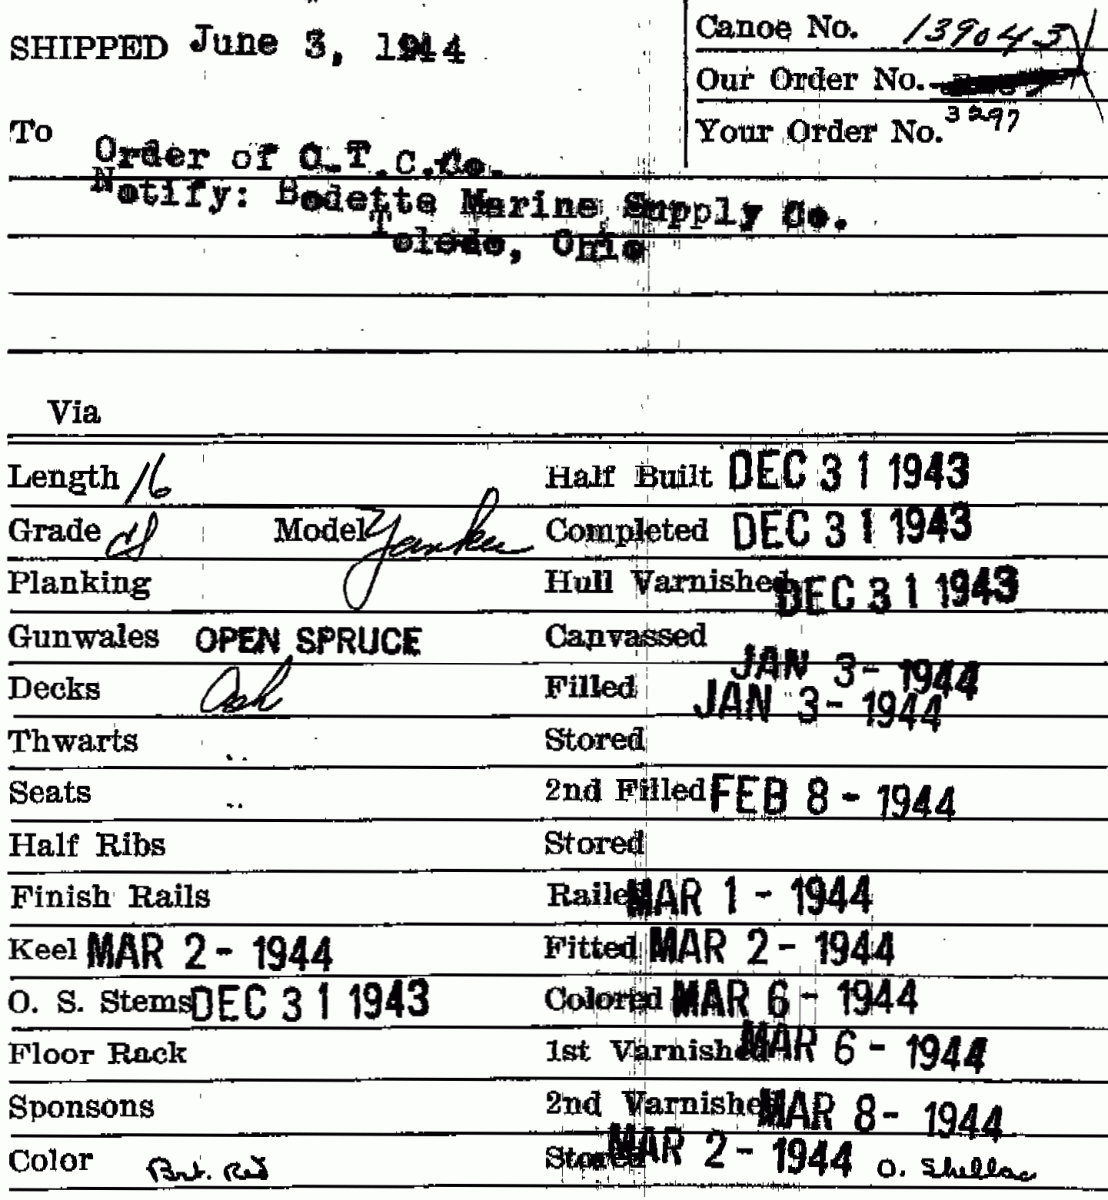 SHIPPED June 3, 1944
Canoe No. 139043
Our Order No.
Your Order No. 3297
To
Order of O.T.C.Co.
Notify: Bodette Marine Supply Co.
Toledo, Ohio
Via
Length 16 Half Built DEC 31 1943
Grade Model Yankee Completed DEC 31 1943
Planking Hull Varnished DEC 31 1943
Gunwales OPEN SPRUCE Canvassed JAN 3- 1944
Decks Ash Filled JAN 3- 1944
Thwarts " Stored
Seats " 2nd Filled FEB 8 - 1944
Half Ribs Stored
Finish Rails Railed MAR 1 - 1944
Keel MAR 2 - 1944 Fitted MAR 2 - 1944
O. S. Stems DEC 31 1943 Colored MAR 6 - 1944
Floor Rack 1st Varnished MAR 6 - 1944
Sponsons 2nd Varnished MAR 8 - 1944
Color Brt. Red Stored MAR 2 - 1944 O. Shellac